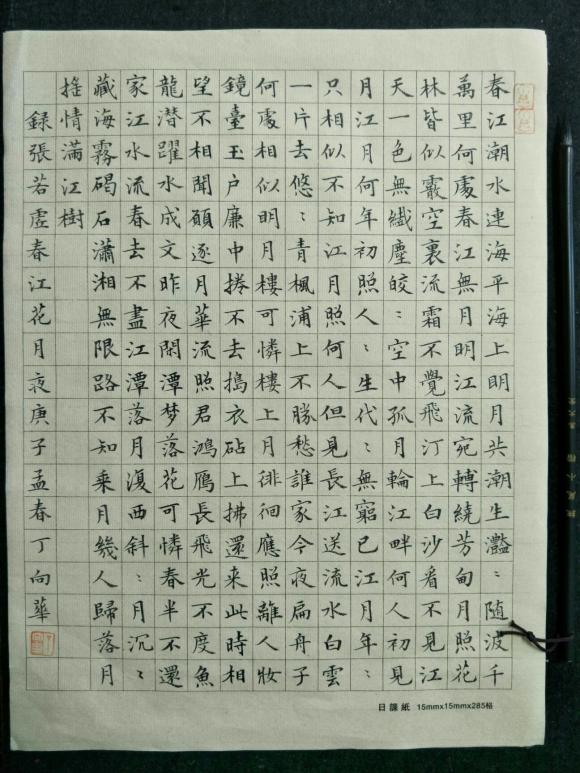 春江潮水連海平海上明月共潮生灩〻随波千
萬里何處春江無月明江流宛轉繞芳甸月照花
林皆似霰空裏流霜不覺飛汀上白沙看不見江
天一色無纖塵皎〻空中孤月輪江畔何人初見
月江月何年初照人〻生代〻無窮已江月年〻
只相似不知江月照何人但見長江送流水白雲
一片去悠〻青楓浦上不勝愁誰家今夜扁舟子
何處相似明月樓可憐樓上月徘徊應照離人妝
鏡臺玉户廉中捲不去搗衣砧上拂還来此時相
望不相聞願逐月華流照君鴻鴈長飛光不度魚
龍潜躍水成文昨夜閑潭梦落花可憐春半不還
家江水流春去不盡江潭落月復西斜〻月沉〻
藏海霧碣石瀟湘無限路不知乗月幾人歸落月
摇情滿江樹
録張若虚春江花月夜庚子孟春丁向華
日課紙 15mmx15mmx285格